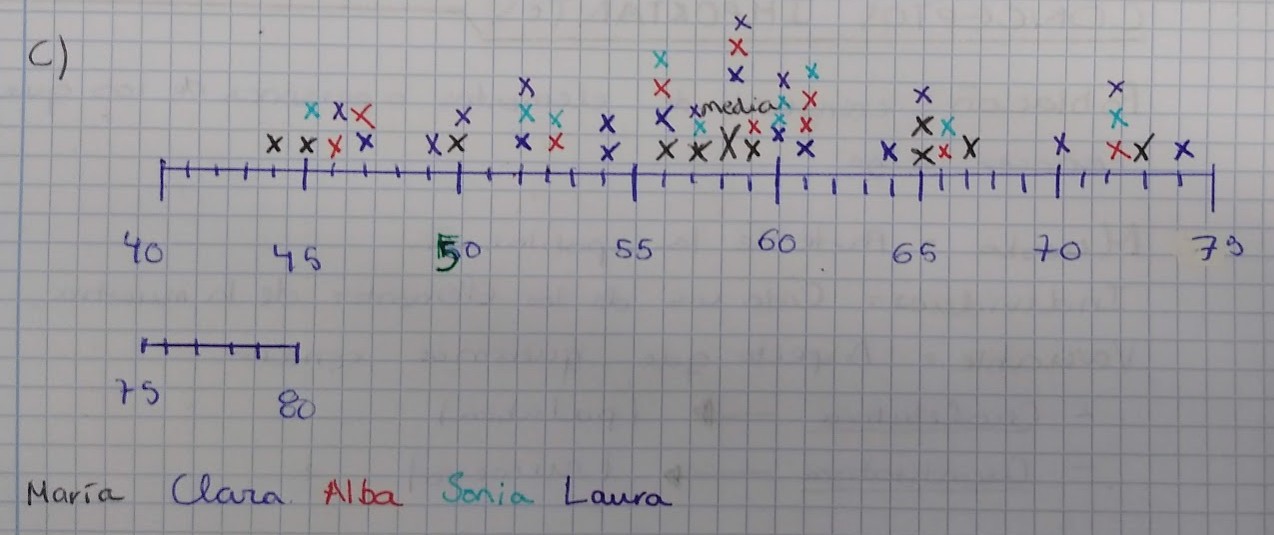 C)
media
40 45 50 55 60 65 70 75
75 80
María Clara Alba Sonia Laura